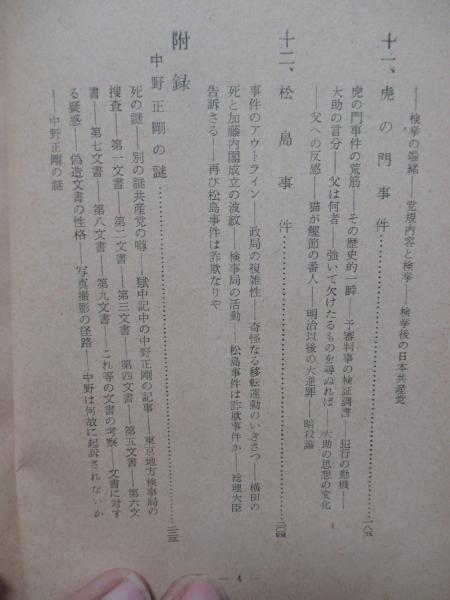 ——検挙の端緒——党規内容と検挙——検挙後の日本共産党
十一、虎の門事件……一八五
虎の門事件の荒筋——その歴史的一瞬——予審判事の検証調書——犯行の動機——
大助の言分——父は何者——強いて欠けたるものを尋ぬれば——大助の思想の変化
——父への反感——猫が鰹節の番人——明治以後の大逆罪——暗殺論
十二、松島事件……二〇四
事件のアウトライン——政局の複雑性——奇怪なる移転運動のいきさつ——横田の
死と加藤内閣成立の波紋——検事局の活動——松島事件は詐欺事件か——総理大臣
告訴さる——再び松島事件は詐欺なりや
附録
中野正剛の謎……二三五
死の謎——別の謎共産党の噂——獄中記中の中野正剛の記事——東京地方検事局の
捜査——第一文書——第二文書——第三文書——第四文書——第五文書——第六文
書——第七文書——第八文書——第九文書——これ等の文書の考察——文書に対す
る疑惑——偽造文書の性格——写真撮影の径路——中野は何故に起訴されないか
——中野正剛の謎
— 4 —